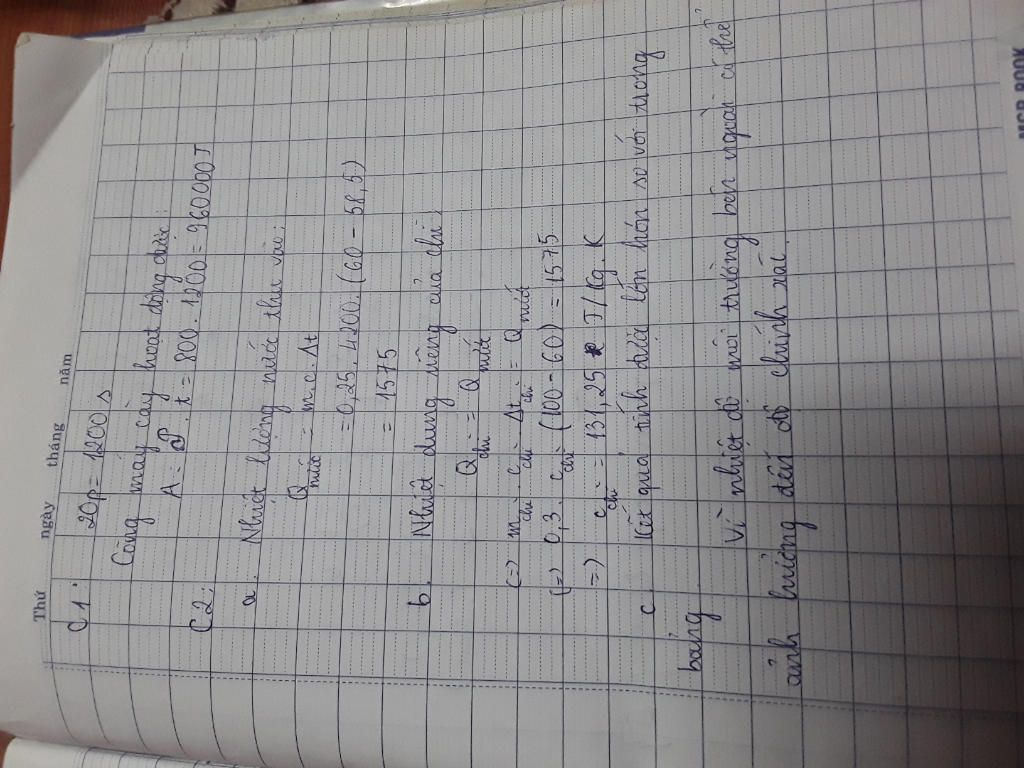 Thứ ngày tháng năm
C1:
20p = 1200 s
Công máy cày hoạt động được:
A = P . t = 800 . 1200 = 960000 J
C2:
a. Nhiệt lượng nước thu vào:
Qnước = m.c.Δt
= 0,25 . 4200 . (60 - 58,5)
= 1575
b. Nhiệt dung riêng của chì:
Qchì = Qnước
(=) mchì . cchì . Δtchì = Qnước
(=) 0,3 . cchì (100 - 60) = 1575
=) cchì = 131,25 J/kg.K
c. Kết quả tính được lớn hơn so với trong
bảng
Vì nhiệt độ môi trường bên ngoài có thể
ảnh hưởng đến độ chính xác.
MGR BOOK